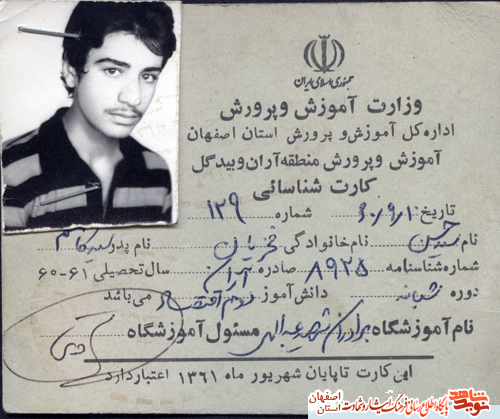 جمهوری اسلامی ایران
وزارت آموزش وپرورش
اداره کل آموزش و پرورش استان اصفهان
آموزش وپرورش منطقه آران وبیدگل
کارت شناسائی
تاریخ ۶۰/۹/۱۰ شماره ۱۲۹
نام سید حسن نام خانوادگی نام پدر
شماره شناسنامه ۸۹۲۵ صادره آران سال تحصیلی ۶۱-۶۰
دوره شبانه دانش آموز دوم اقتصاد می باشد
نام آموزشگاه برادران شهید عبداللهی مسئول آموزشگاه
این کارت تاپایان شهریور ماه ۱۳۶۱ اعتبار دارد
نوید شاهد
پایگاه اطلاع رسانی فرهنگ ایثار و شهادت
استان اصفهان